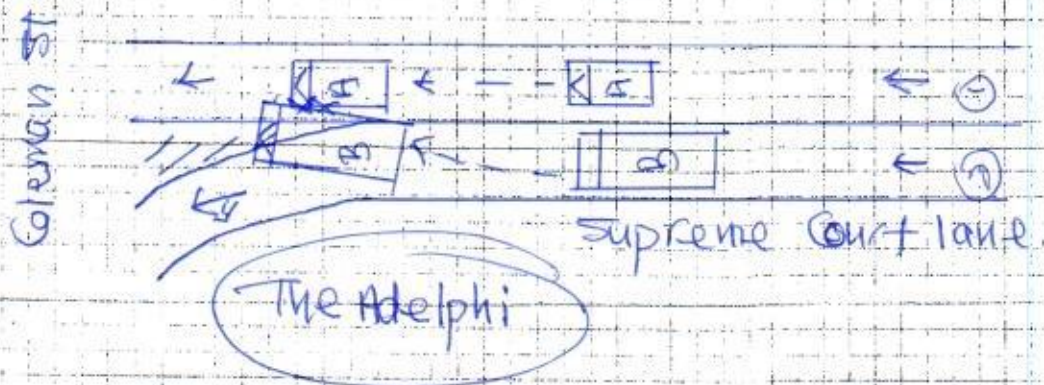 Coleman ST
A
A
1
B
B
2
Supreme Court lane
The Adelphi